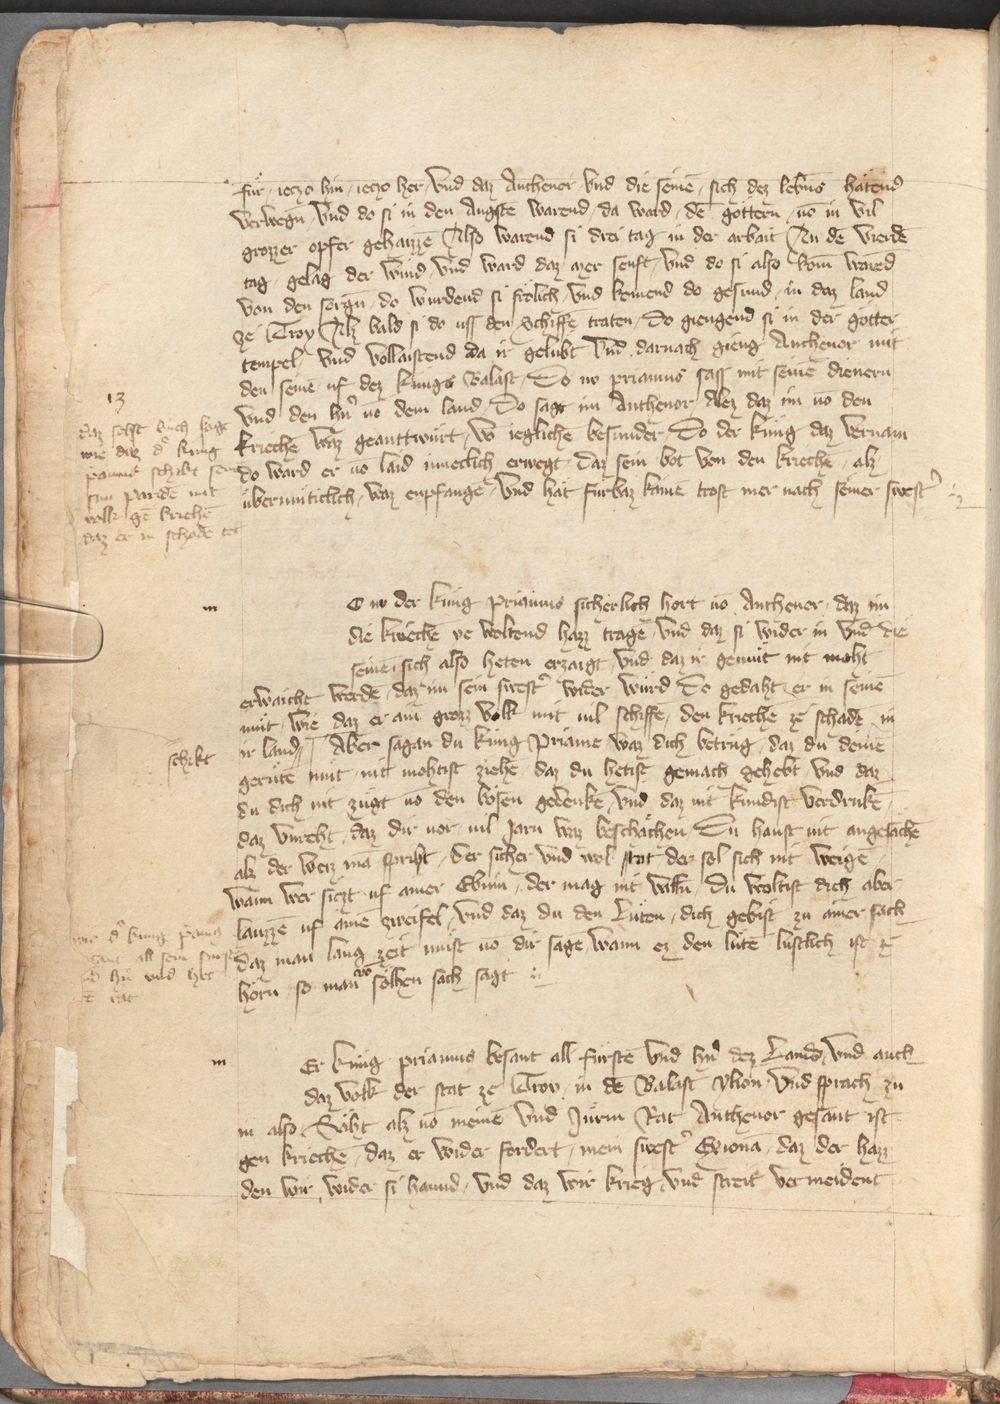 für / ieczo hin / ieczo her / Vnd daz Anthenor Vnd die seinē / sich dez lebn̄s hätend
verwegn̄ / Vnd do si in den Angste warend / da ward / dē göttern / uō in vil
grozzer opfer gehaizzē Also warend si drei tag in der arbait An dē vierdē
tag / gelag der wind / Vnd ward daz mer senft / Vnd do si also kom̄ warēd
von den sorgn̄ / do wurdend si frölich / Vnd komend do gesund / in daz land
ze Troy Alz bald si do uss den Schiffē traten / Do giengend si in der götter
tempel / Vnd vollaistend da ir gelübt Vnd darnach gieng Anthenor mit
den seinē uf dez kungs Balast / Do nv priamus sass mit seinē dienern
Vnd den hr̄n uō dem land / Do sagt im Anthenor / Alez daz im uō den
kriechē waz geanttwürt / vō ieglichē besunder / Do der kung daz vernam
do ward er uō laid inneclich erwegt / Daz sein bot von den kriechē / alz
übermüticlich / waz enpfangē / Vnd hat fürbaz kainē trost mer nach seiner swest̓
13
daz sehst buch sagt
wie daz d̓ kung
pamus schikt sein
sun paridē mit
volk gē kriechē
daz er in schadē tet
O nv der kung Priamus sicherlich hort uō Anthenor / daz im
die kriechē ye woltend hazz tragē / Vnd daz si wider in Vnd die
seinē / sich also heten erzaigt / Vnd daz ir gemüt nit moht
erwaicht werdē / daz im sein swest̓ wider würd Do gedaht er in seinē
mut / wie daz er ain grozz Volk mit vil schiffē / den kriechē ze schadē / in
schikt
ir land / Aber sagan du kung Priame waz dich betrüg / daz du deinē
gerutē mut / nit mohtist ziehē / daz du hetist gemach gehebt / Vnd daz
du dich nit zügt uō den bösen gedenkē / Vnd daz nit kundist verdrukē
daz vnreht / daz dir uor vil Jarn waz beschächen / Du hanst nit angesächē
alz der weiz mā spricht / der sicher Vnd wol stat der sol sich nit wegē
wann wer siczt uf ainer Ebnin / der mag nit valn̄ / Du woltist dich aber
lauzzē uf ainē zweifel / Vnd daz du den Lüten / dich gebist zu ainer sach
daz man lang zeit müst uō dir sagē wann ez den lütē lustlich ist ze
hörn so man vō sölhen sach sagt
wie d̓ kung pamꝰ
sant all sein fürstē
vnd hr̄n vnd het
rat
Er kung priamus besant all fürstē Vnd hr̄n dez Lands / Vnd auch
daz volk der stat ze Troy / in dē Balast ylion / Vnd sprach zu
in also / Secht alz uō meinē Vnd Jürm Rat Anthenor gesant ist
gen kriechē / daz er wider fordert / mein swest̓ Exiona / daz der hazz
den wir wider si hannd / Vnd daz wir krieg Vnd streit vermeident